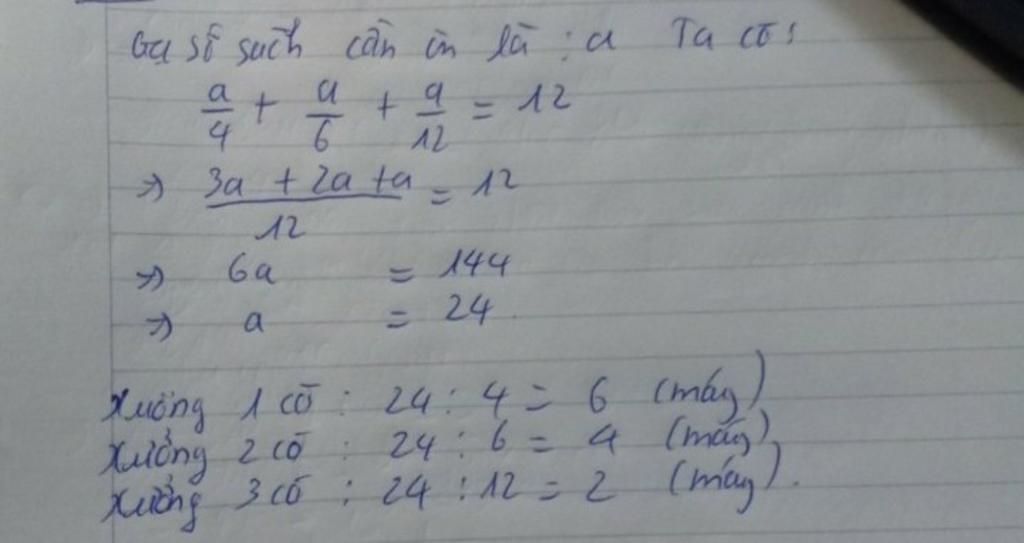 Gọi số sách cần in là : a Ta có :
a/4 + a/6 + a/12 = 12
=> (3a + 2a + a)/12 = 12
=> 6a = 144
=> a = 24.
Xưởng 1 có : 24 : 4 = 6 (máy)
Xưởng 2 có : 24 : 6 = 4 (máy)
Xưởng 3 có : 24 : 12 = 2 (máy).